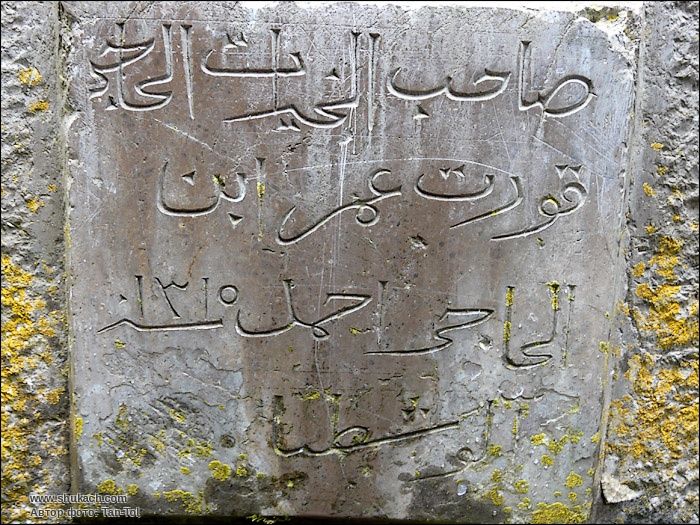 صاحب الخيرات الحاجي
قورت عمر ابن
الحاجي احمد سنة ١٣١٥
www.shukach.com
Автор фото: Tan-Tol